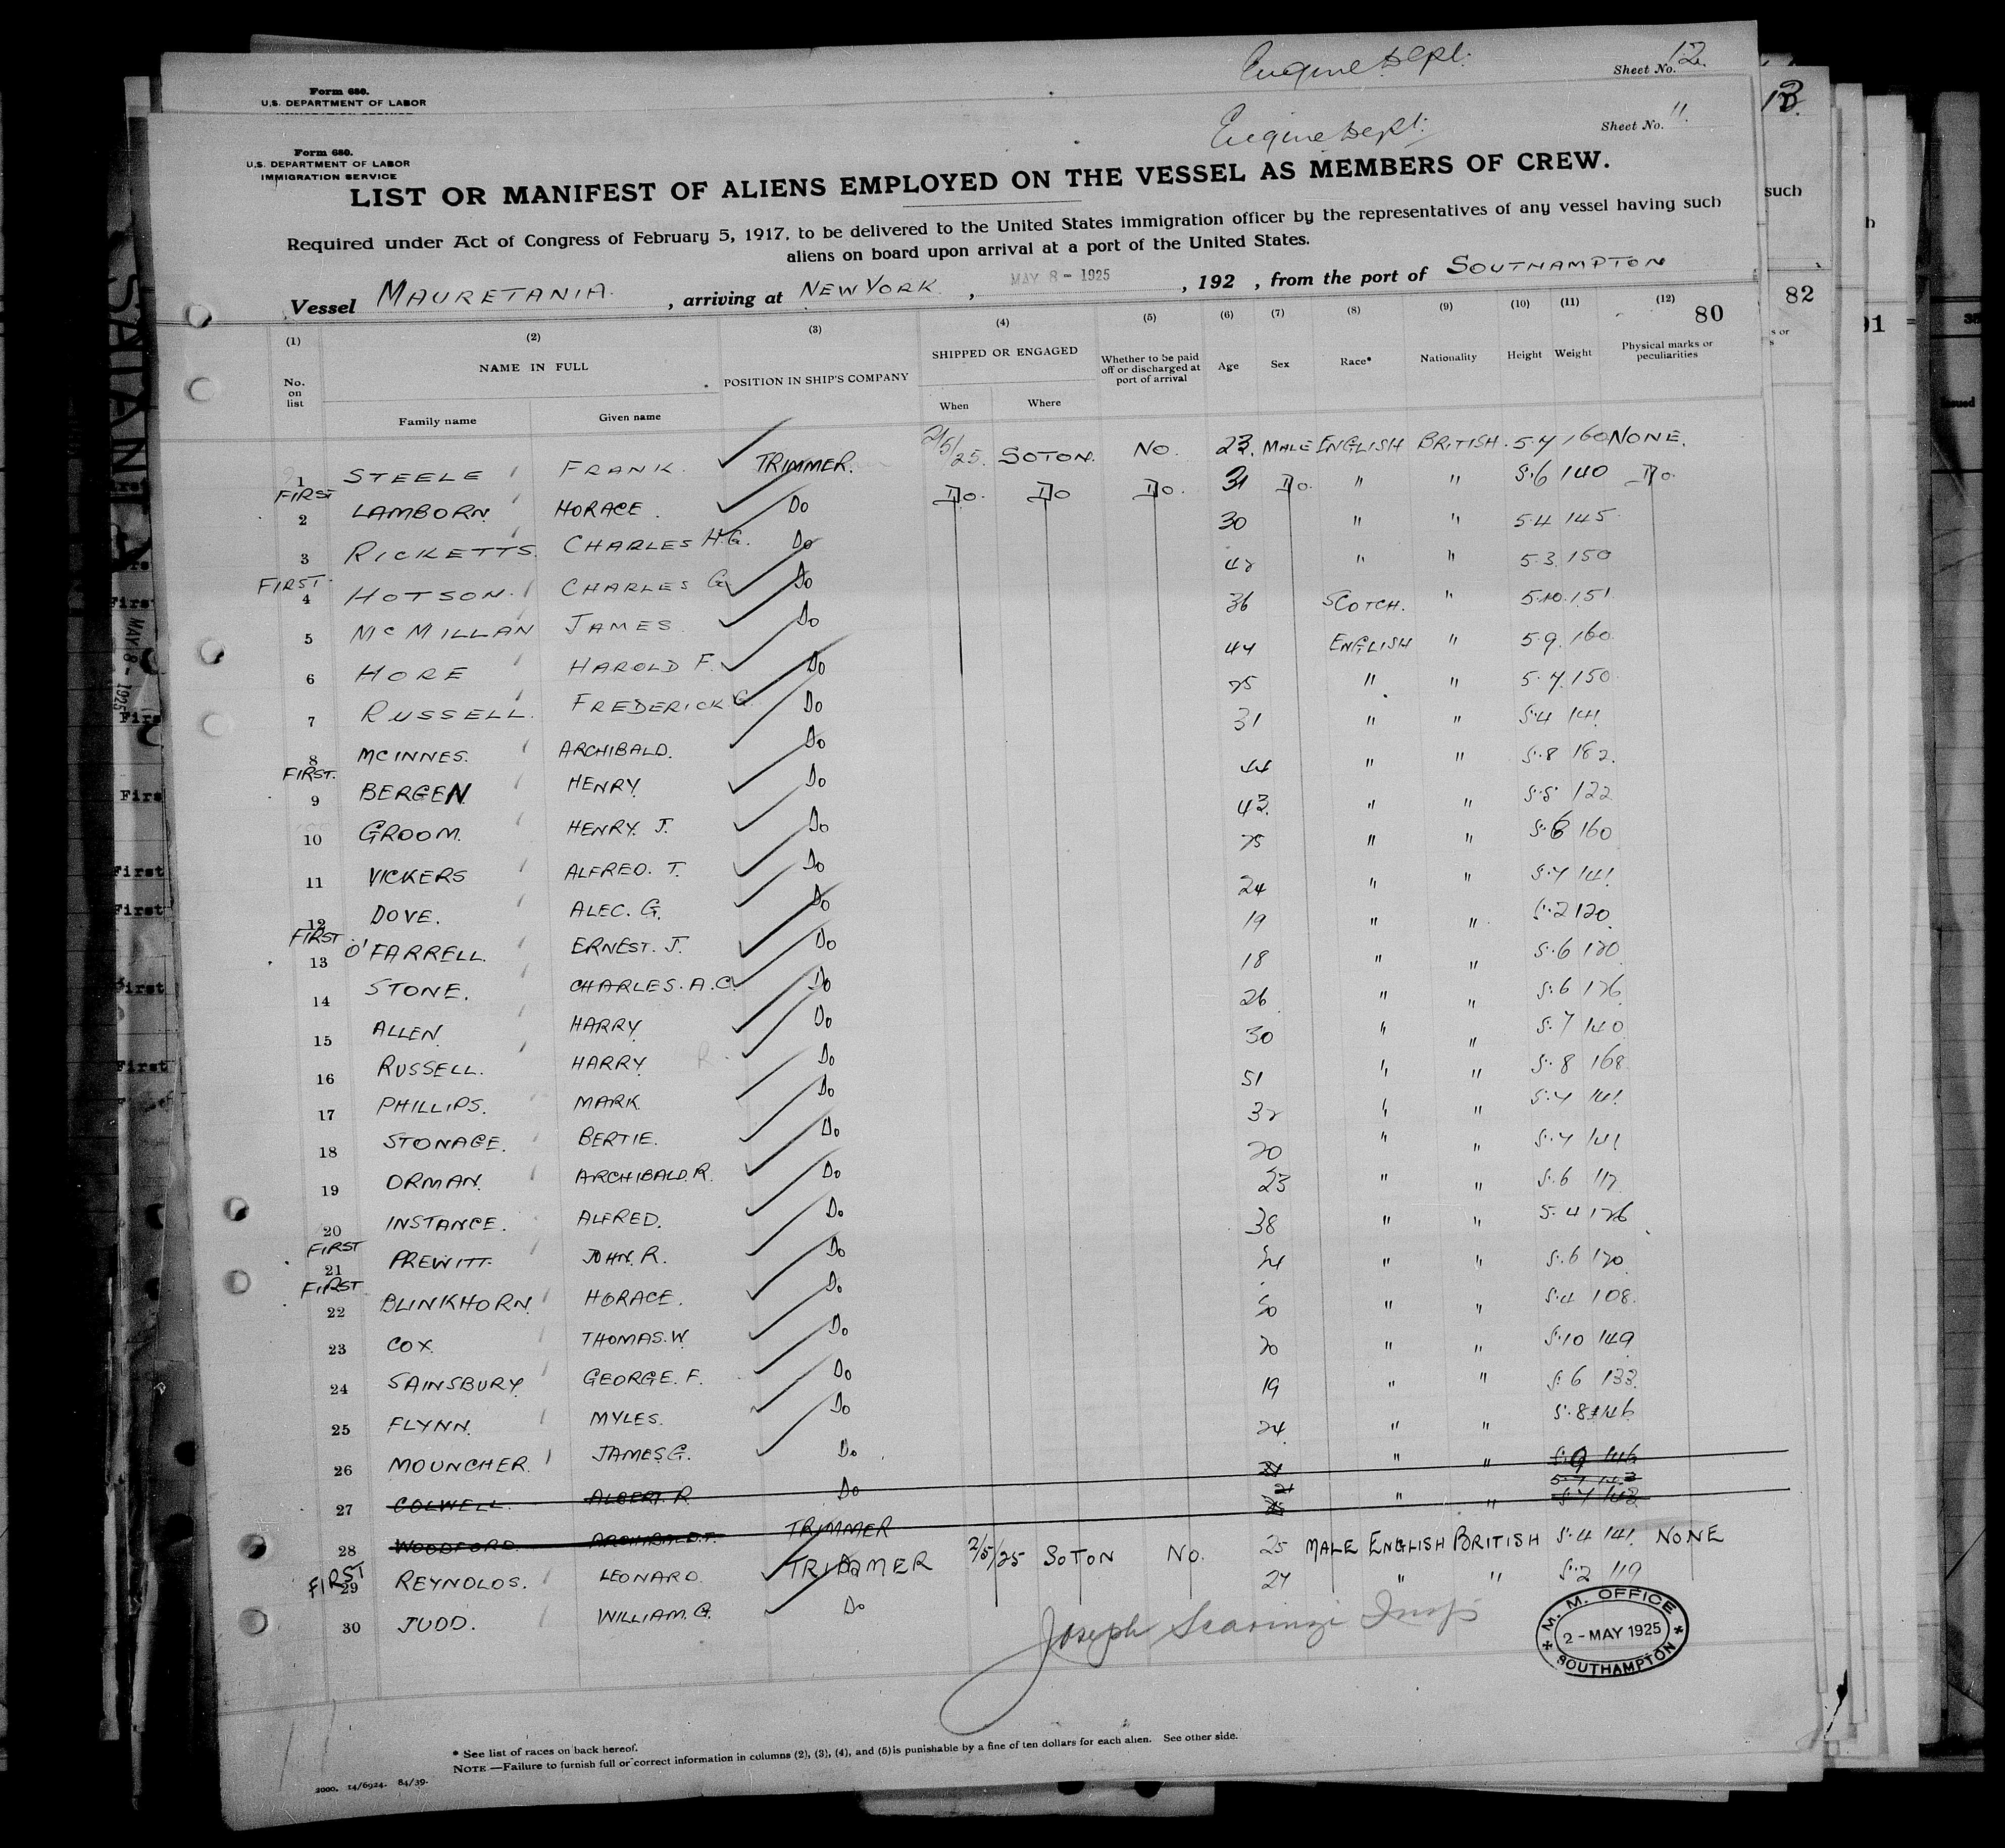 Engine Dept.
Sheet No. 12.
Form 680.
U.S. DEPARTMENT OF LABOR
Engine Dept.
Sheet No. 11.
Form 680.
U.S. DEPARTMENT OF LABOR
IMMIGRATION SERVICE
LIST OR MANIFEST OF ALIENS EMPLOYED ON THE VESSEL AS MEMBERS OF CREW.
such
Required under Act of Congress of February 5, 1917, to be delivered to the United States immigration officer by the representatives of any vessel having such
aliens on board upon arrival at a port of the United States.
Vessel MAURETANIA. , arriving at NEW YORK , MAY 8 - 1925 , 192 , from the port of SOUTHAMPTON
(1) (2) (3) (4) (5) (6) (7) (8) (9) (10) (11) (12) 80 82 91
No. on list NAME IN FULL POSITION IN SHIP'S COMPANY SHIPPED OR ENGAGED Whether to be paid off or discharged at port of arrival Age Sex Race* Nationality Height Weight Physical marks or peculiarities
Family name Given name When Where
1 STEELE FRANK. TRIMMER. 2/5/25. SOTON. NO. 23. MALE ENGLISH BRITISH. 5.7 160 NONE.
FIRST
2 LAMBORN HORACE. Do Do. Do Do. 31 Do. " " 5.6 140 Do.
3 RICKETTS. CHARLES H.G. Do 30 " " 5.4 145
FIRST.
4 HOTSON. CHARLES G Do 42 " " 5.3. 150
5 McMILLAN JAMES Do 36 SCOTCH. " 5.10. 151
6 HORE HAROLD F. Do 44 ENGLISH " 5.9. 160
7 RUSSELL. FREDERICK G. Do 25 " " 5.7. 150
8 MCINNES. ARCHIBALD. Do 31 " " 5.4 141
FIRST.
9 BERGEN HENRY. Do 44 " " 5.8 182.
10 GROOM. HENRY. J. Do 43. " " 5.5 122
11 VICKERS ALFRED. T. Do 25 " " 5.6 160
12 DOVE. ALEC. G. Do 24 " " 5.7 141
FIRST
13 O'FARRELL. ERNEST. J. Do 19 " " 5.2 120
14 STONE. CHARLES. A.C. Do 18 " " 5.6 120
15 ALLEN. HARRY. Do 26 " " 5.6 126
16 RUSSELL. HARRY. R Do 30 " " 5.7 140
17 PHILLIPS. MARK. Do 51 " " 5.8 168
18 STONAGE. BERTIE. Do 32 " " 5.7 141
19 ORMAN. ARCHIBALD. R. Do 20 " " 5.7 141
20 INSTANCE. ALFRED. Do 23 " " 5.6 117
FIRST
21 PREWITT. JOHN. R. Do 38 " " 5.4 126
FIRST
22 BLINKHORN. HORACE. Do 24 " " 5.6 120
23 COX. THOMAS. W. Do 20 " " 5.4 108.
24 SAINSBURY. GEORGE. F. Do 20 " " 5.10 149
25 FLYNN. MYLES. Do 19 " " 5.6 133.
26 MOUNCHER. JAMES. G. Do 24. " " 5.8 146
27 COLWELL. ALBERT. R. Do " " 5.9 146
28 WOODFORD. ARCHIBALD. F. TRIMMER " "
FIRST
29 REYNOLDS. LEONARD. TRIMMER 2/5/25 SOTON NO. 25 MALE ENGLISH BRITISH 5.4 141. NONE
30 JUDD. WILLIAM. G. Do 24 " " 5.2 119
Joseph Scarinzi Insp
M. M. OFFICE
2 - MAY 1925
SOUTHAMPTON
* See list of races on back hereof.
NOTE.—Failure to furnish full or correct information in columns (2), (3), (4), and (5) is punishable by a fine of ten dollars for each alien. See other side.
2000. 14/6924. 84/39.